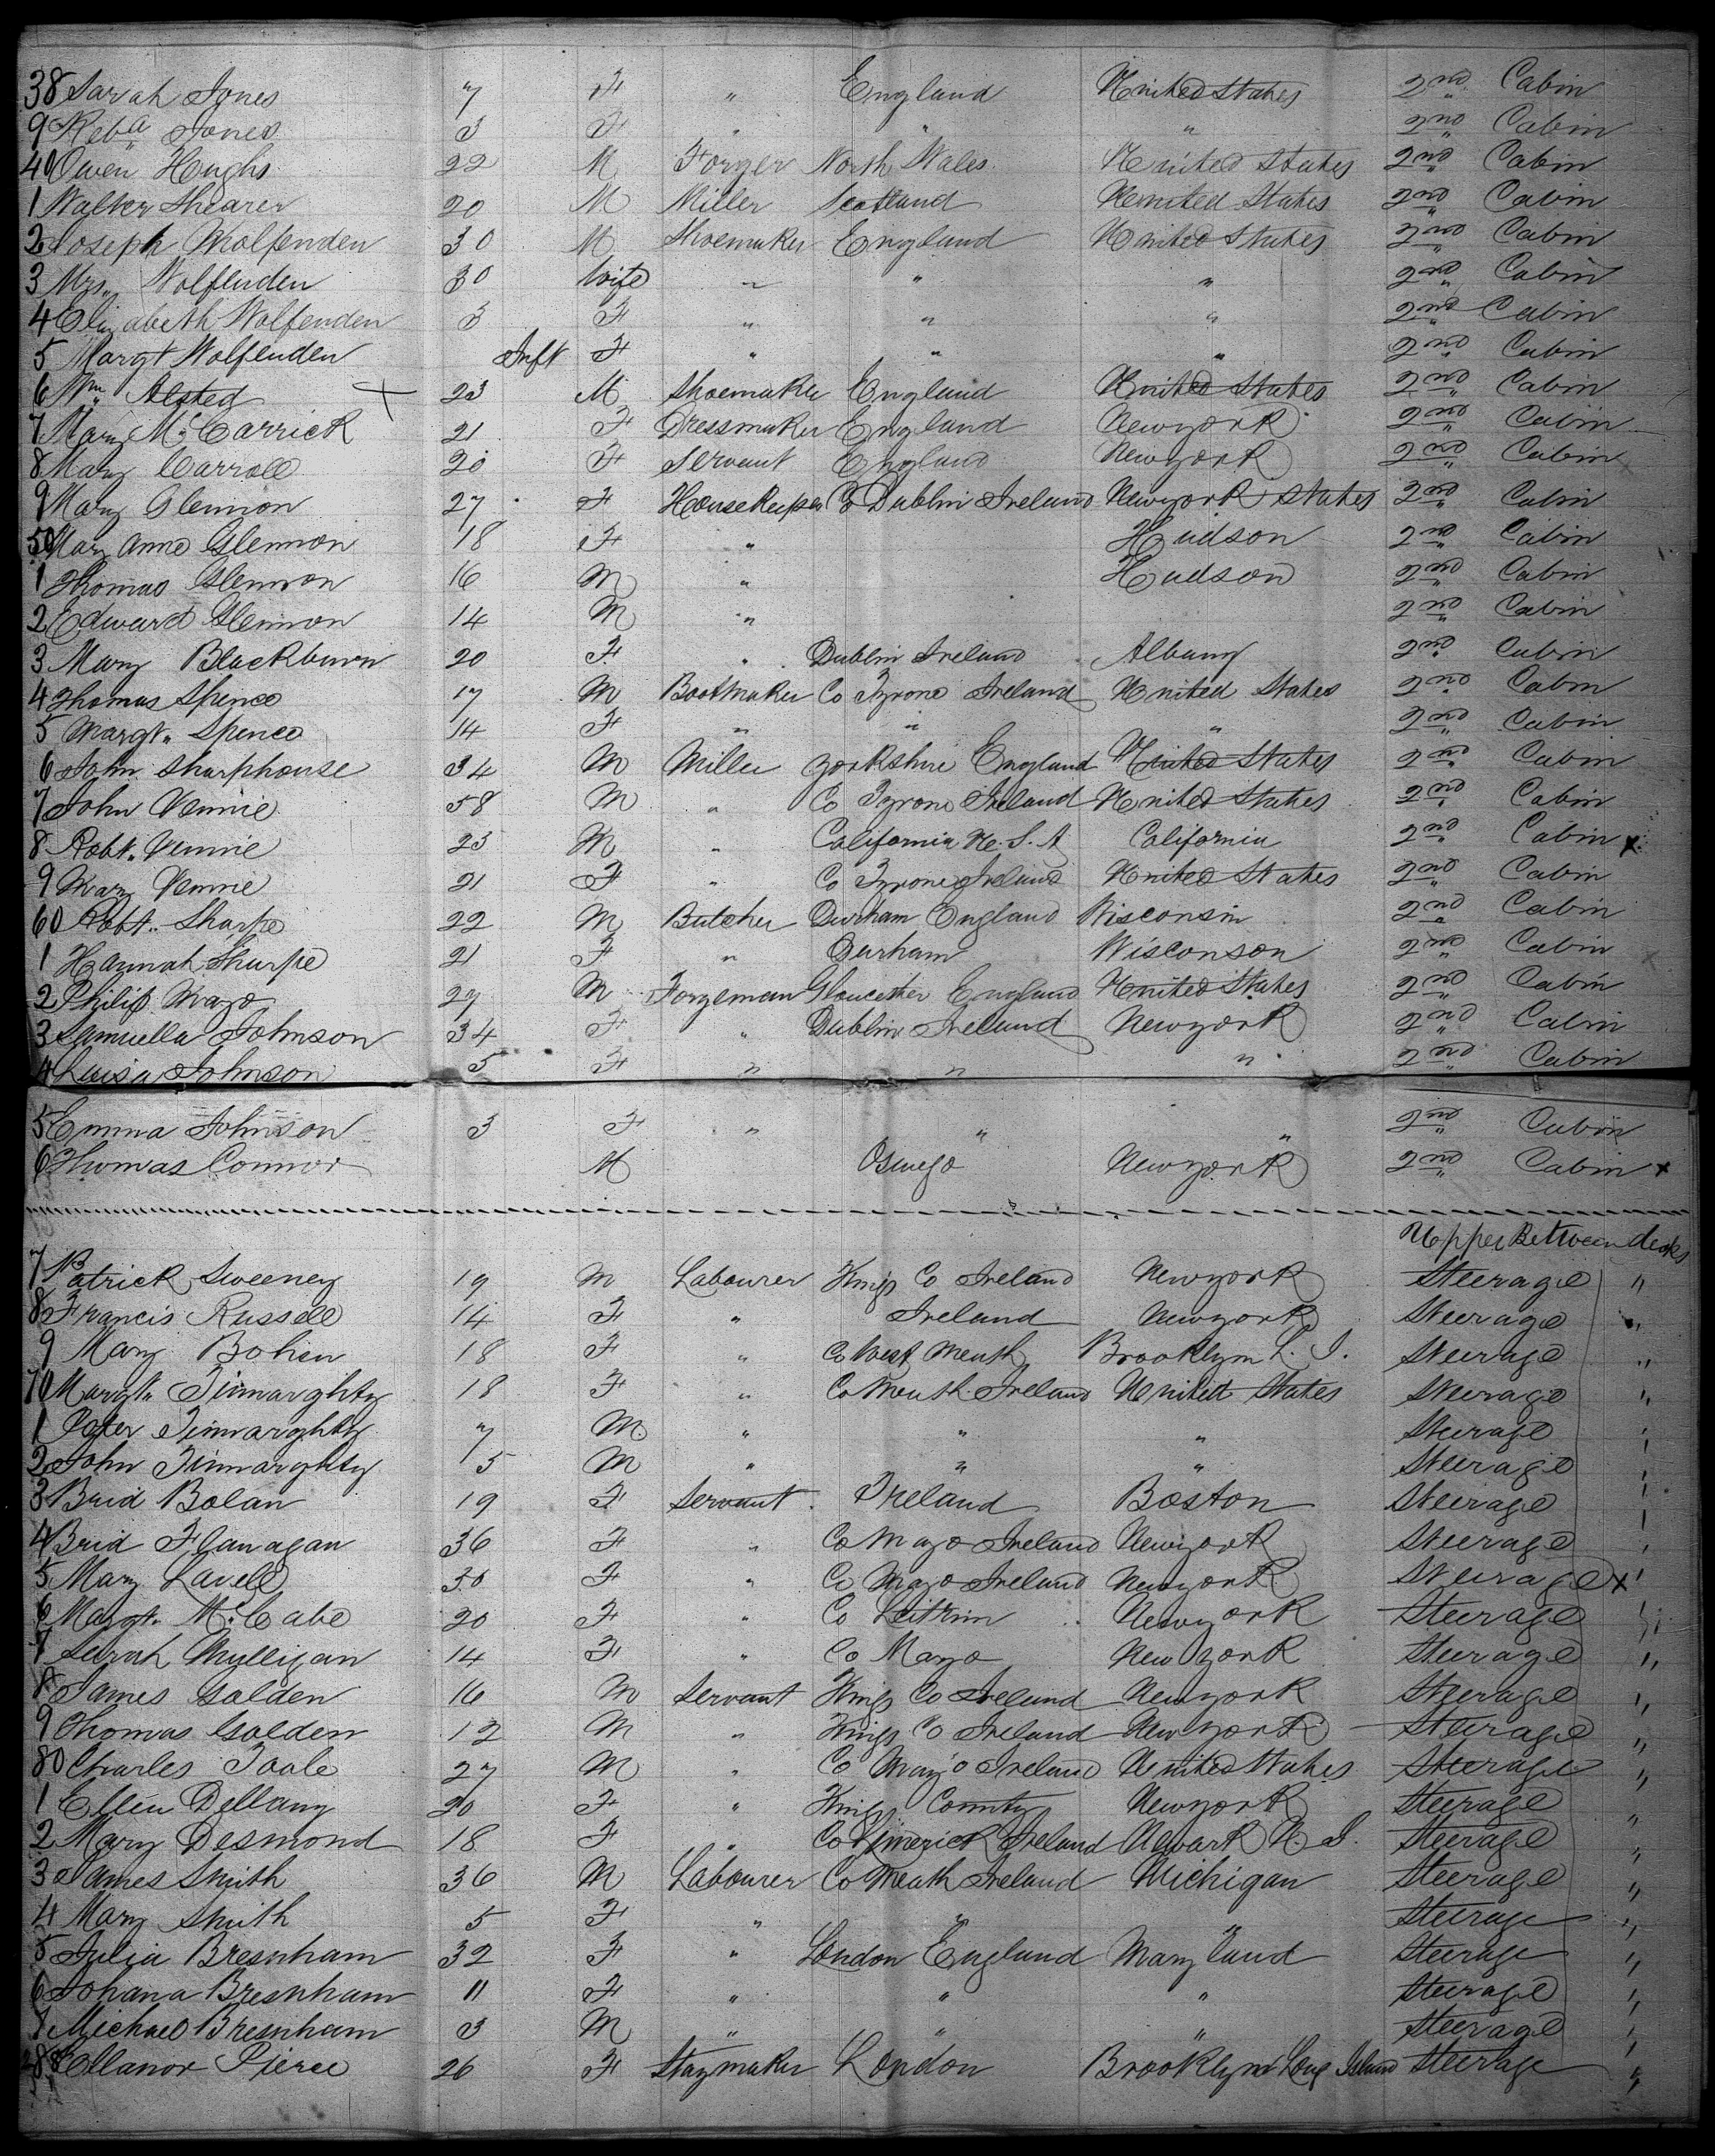 38 Sarah Jones 7 F " England United States 2nd Cabin
9 Reba Jones 3 F " " " 2nd Cabin
40 Owen Hughs 22 M Forger North Wales United States 2nd Cabin
1 Walter Shearer 20 M Miller Scotland United States 2nd Cabin
2 Joseph Wolfenden 30 M Shoemaker England United States 2nd Cabin
3 Mrs. Wolfenden 30 Wife " " " 2nd Cabin
4 Elizabeth Wolfenden 3 F " " " 2nd Cabin
5 Margt Wolfenden Inft F " " " 2nd Cabin
6 Wm Alsted 23 M Shoemaker England United States 2nd Cabin
7 Mary McCarrick 21 F Dressmaker England Newyork 2nd Cabin
8 Mary Carroll 20 F Servant England Newyork 2nd Cabin
9 Mary Glennon 27 F HouseKeeper Co Dublin Ireland Newyork States 2nd Cabin
50 Mary Anne Glennon 18 F " Hudson 2nd Cabin
1 Thomas Glennon 16 M " Hudson 2nd Cabin
2 Edward Glennon 14 M " 2nd Cabin
3 Mary Blackburn 20 F " Dublin Ireland Albany 2nd Cabin
4 Thomas Spence 17 M Bootmaker Co Tyrone Ireland United States 2nd Cabin
5 Margt. Spence 14 F " " " 2nd Cabin
6 John Sharphouse 34 M Miller Yorkshire England United States 2nd Cabin
7 John Vennie 58 M " Co Tyrone Ireland United States 2nd Cabin
8 Robt. Vennie 23 M " California U.S.A California 2nd Cabin x
9 Mary Vennie 21 F " Co Tyrone Ireland United States 2nd Cabin
60 Robt. Sharpe 22 M Butcher Durham England Wisconsin 2nd Cabin
1 Hannah Sharpe 21 F " Durham Wisconson 2nd Cabin
2 Philip Mayo 27 M Forgeman Gloucester England United States 2nd Cabin
3 Samuella Johnson 34 F " Dublin Ireland Newyork 2nd Cabin
4 Luisa Johnson 5 F " " " 2nd Cabin
5 Emma Johnson 3 F " " " 2nd Cabin
6 Thomas Connor M Oswego Newyork 2nd Cabin x
Upper Between decks
7 Patrick Sweeney 19 M Labourer Kings Co Ireland Newyork Steerage "
8 Francis Russell 14 F " Ireland Newyork Steerage "
9 Mary Bohen 18 F " Co West Meath Brooklym L. I. Steerage "
70 Margt. Finnarghty 18 F " Co Meath Ireland United States Steerage "
1 Peter Finnarghty 7 M " " " Steerage "
2 John Finnarghty 5 M " " " Steerage "
3 Brid Bolan 19 F Servant Ireland Boston Steerage "
4 Brid Flanagan 36 F " Co Mayo Ireland Newyork Steerage "
5 Mary Lavell 30 F " Co Mayo Ireland Newyork Steerage x "
6 Margt. McCabe 20 F " Co Leitrim Newyork Steerage "
7 Sarah Mulligan 14 F " Co Mayo New York Steerage "
8 James Golden 16 M Servant Kings Co Ireland Newyork Steerage "
9 Thomas Golden 12 M " Kings Co Ireland New York Steerage "
80 Charles Toole 27 M " Co Mayo Ireland United States Steerage "
1 Ellen Dellany 20 F " Kings County Newyork Steerage "
2 Mary Desmond 18 F " Co Limerick Ireland Newark N. J. Steerage "
3 James Smith 36 M Labourer Co Meath Ireland Michigan Steerage "
4 Mary Smith 5 F " " " Steerage "
5 Julia Bresnham 32 F " London England Maryland Steerage "
6 Johana Bresnham 11 F " " " Steerage "
7 Michael Bresnham 3 M " " " Steerage "
88 Ellanor Pierce 26 F Staymaker London Brooklyn Long Island Steerage "